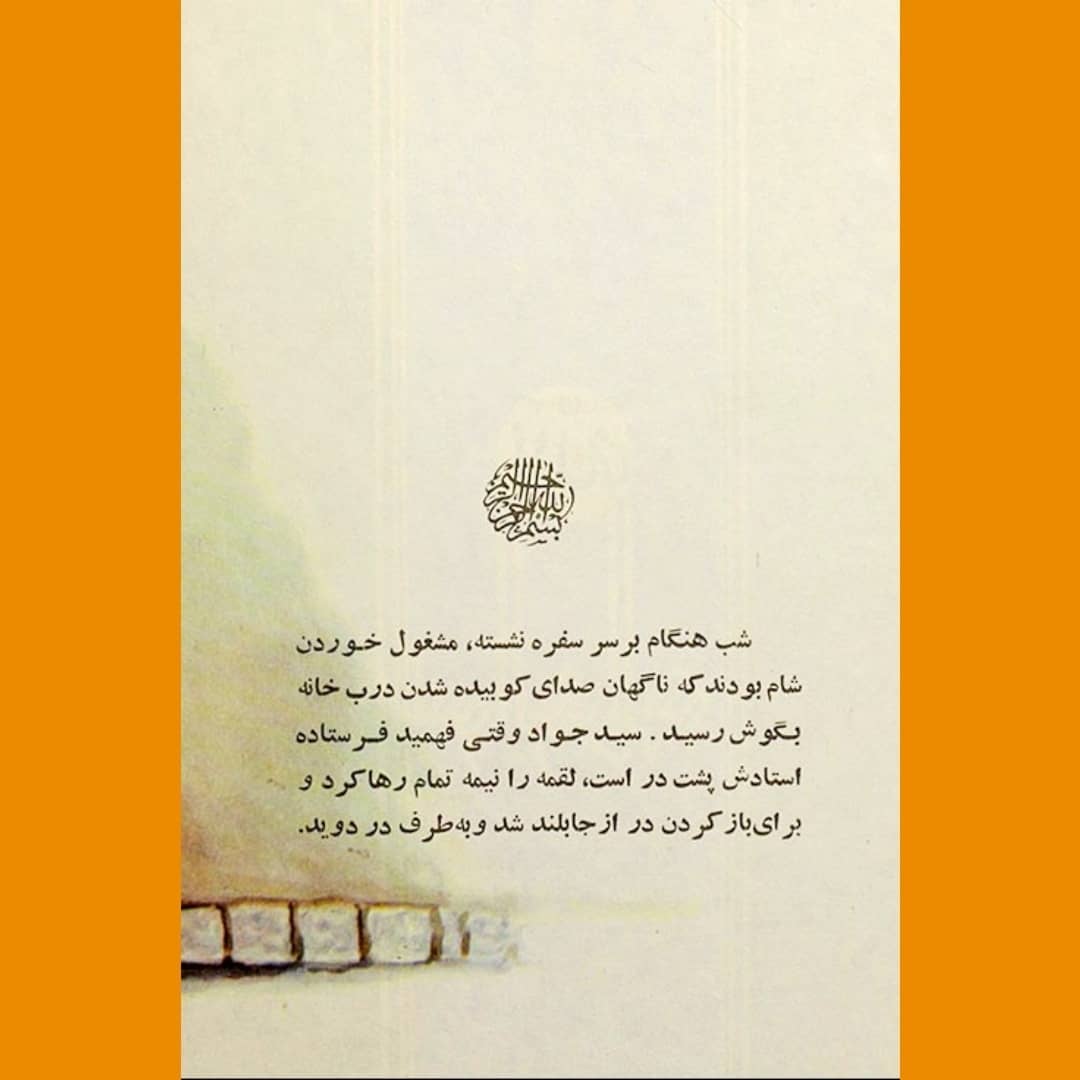 بسم الله الرحمن الرحیم
شب هنگام بر سر سفره نشسته، مشغول خوردن
شام بودند که ناگهان صدای کوبیده شدن درب خانه
بگوش رسید. سید جواد وقتی فهمید فرستاده
استادش پشت در است، لقمه را نیمه تمام رها کرد و
برای باز کردن در از جا بلند شد و به طرف در دوید.